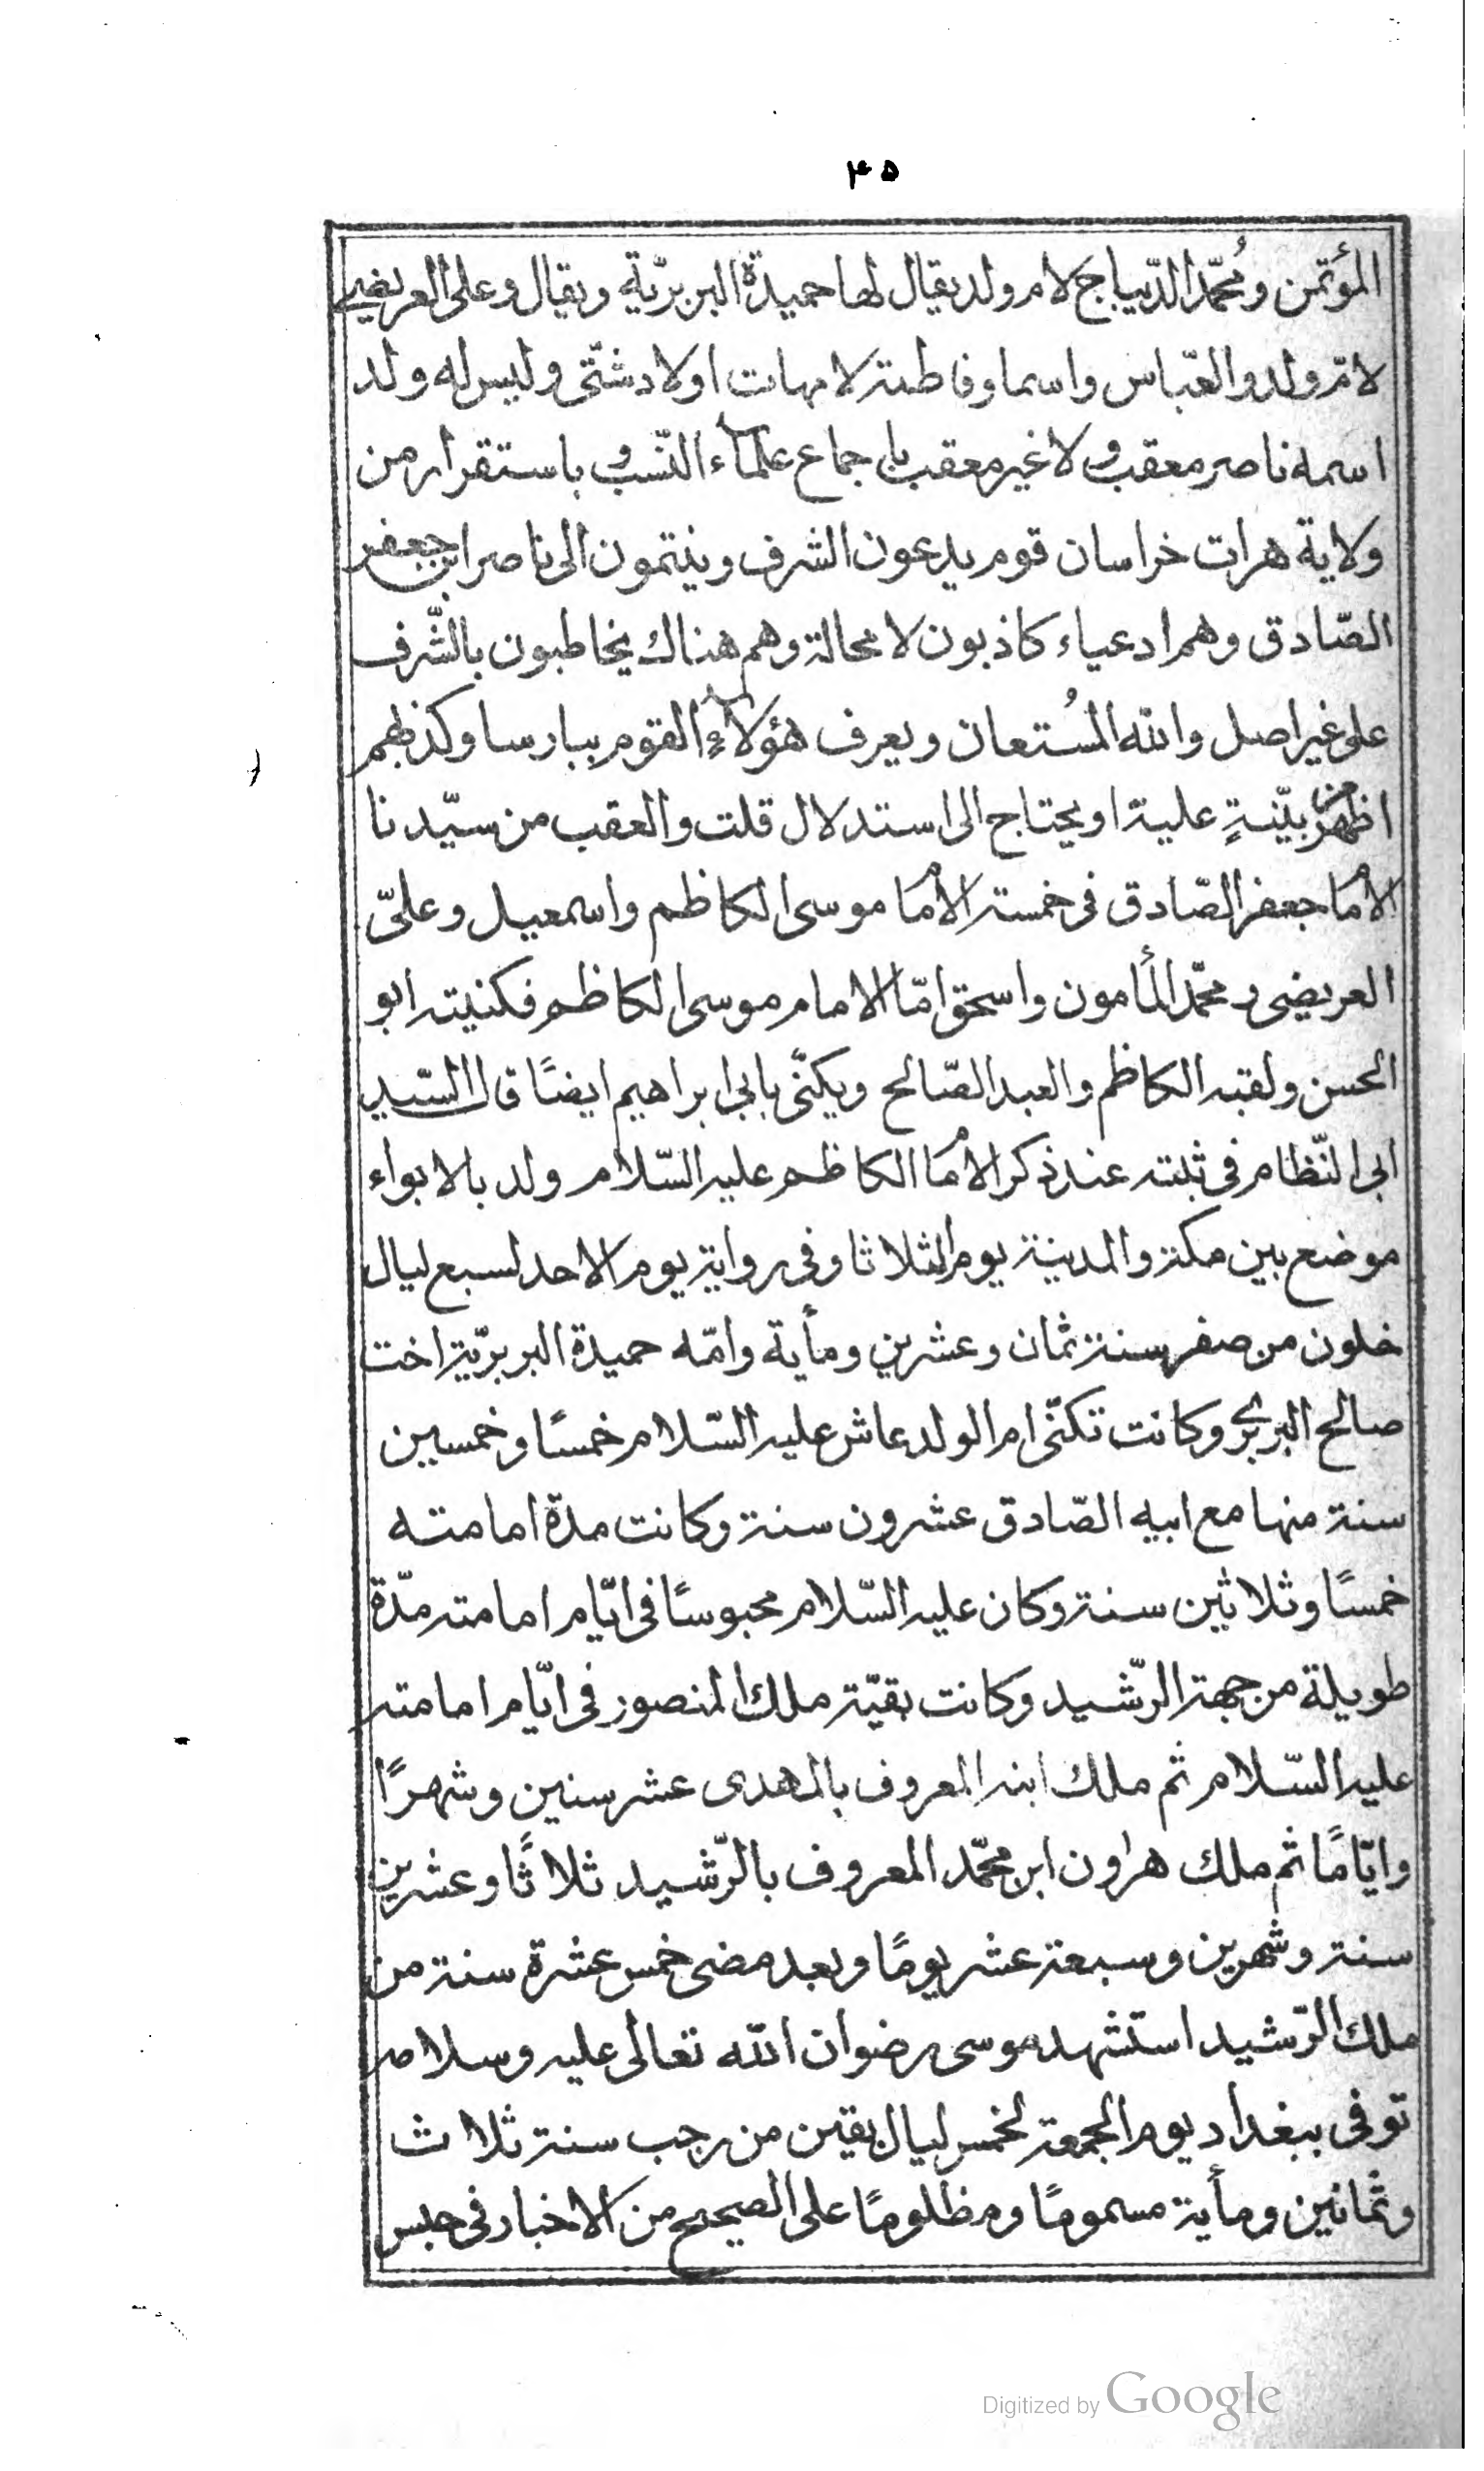 ٤٥
المؤتمن ومُحمّد الدّيباج لام ولد يقال لها حميدة البربريّة ويقال وعلى العريضى
لامّ ولد والعّباس واسما وفاطمة لامهات اولاد شتّى وليس له ولد
اسمه ناصر معقب ولا غير معقب باجماع علماء النّسب و باستقرار من
ولاية هرات خراسان قوم يدعون الشرف وينتمون الى ناصر ابن جعفر
الصّادق وهم ادعياء كاذبون لا محالة وهم هناك يخاطبون بالشّرف
على غير اصل والله المُستعان ويعرف هؤلاء القوم ببارسا وكذبهم
اظهر من بيّنةٍ علية او يحتاج الى استدلال قلت والعقب من سيّدنا
الامام جعفر الصّادق فى خمسة الامام موسى الكاظم واسمعيل وعلىّ
العريضى و محمّد المأمون واسحق امّا الامام موسى الكاظم فكنيته ابو
الحسن ولقبه الكاظم والعبد الصّالح ويكنّى بابى ابراهيم ايضًا قال السّيد
ابى النّظام فى ثبته عند ذكر الامام الكاظم عليه السّلام ولد بالابواء
موضع بين مكة والمدينة يوم الثلاثا وفى رواية يوم الاحد لسبع ليال
خلون من صفر سنة ثمان وعشرين ومأية وامّه حميدة البربريّة اخت
صالح البربرى وكانت تكنّى ام الولد عاش عليه السّلام خمسًا وخمسين
سنة منها مع ابيه الصّادق عشرون سنة وكانت مدة امامته
خمسًا وثلاثين سنة وكان عليه السّلام محبوسًا فى ايّام امامته مدّة
طويلة من جهة الرّشيد وكانت بقيّة ملك المنصور فى ايّام امامته
عليه السّلام ثم ملك ابنه المعروف بالمهدى عشر سنين وشهرًا
وايّامًا ثم ملك هرون ابن محمّد المعروف بالرّشيد ثلاثًا وعشرين
سنة وشهرين وسبعة عشر يومًا وبعد مضى خمس عشرة سنة من
ملك الرّشيد استشهد موسى رضوان الله تعالى عليه وسلامه
توفى ببغداد يوم الجمعة لخمس ليال بقين من رجب سنة ثلاث
وثمانين ومأية مسمومًا ومظلومًا على الصحيح من الاخبار فى حبس
Digitized by Google